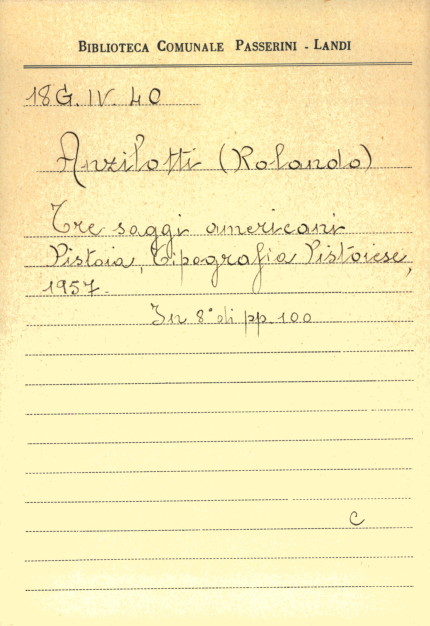 BIBLIOTECA COMUNALE PASSERINI - LANDI
18G. IV. 40
Anzilotti (Rolando)
Tre saggi americani
Pistoia, Tipografia Pistoiese,
1957.
In 8° di pp. 100
C